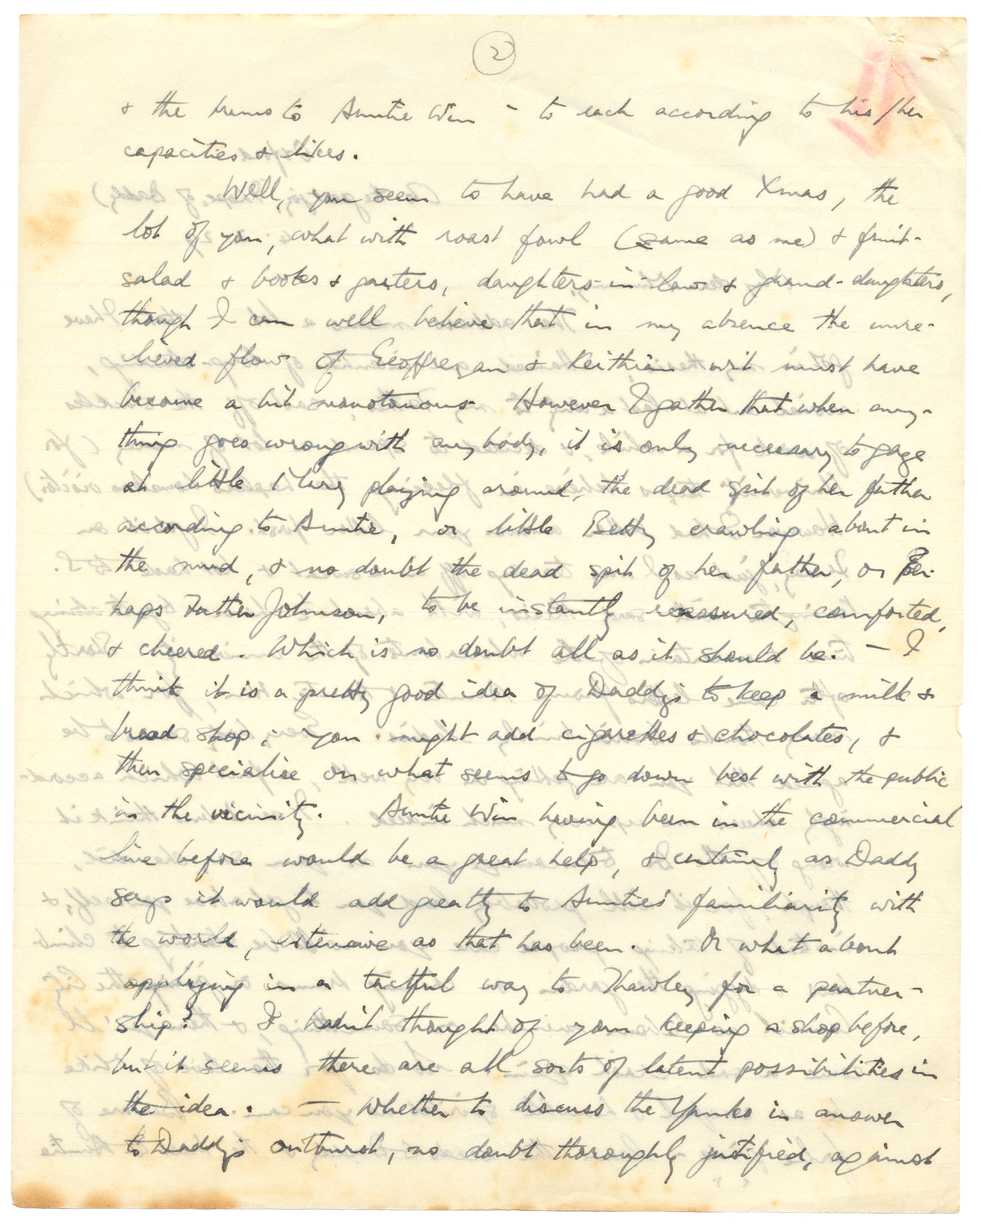 2
& the hums to Auntie Win – to each according to his/her
capacities & likes.
Well, you seem to have had a good Xmas, the
lot of you, what with roast fowl (same as me) & fruit-
salad & books & garters, daughters-in-law & grand-daughters,
though I can well believe that in my absence the unre-
lieved flow of Geoffregan & Keithian wit must have
become a bit monotonous. However I gather that when any-
thing goes wrong with anybody, it is only necessary to gaze
at little Mary playing around, the dead spit of her father
according to Auntie, or little Betty crawling about in
the mud, & no doubt the dead spit of her father, or Per-
haps Father Johnson, to be instantly reassured, comforted,
& cheered. Which is no doubt all as it should be. – I
think it is a pretty good idea of Daddy's to keep a milk &
bread shop; you might add cigarettes & chocolates, &
then specialise on what seems to go down best with the public
in the vicinity. Auntie Win having been in the commercial
line before would be a great help, & certainly as Daddy
says it would add greatly to Auntie's familiarity with
the world, extensive as that has been. Or what about
applying in a tactful way to Thawley for a partner-
ship? I hadn't thought of your keeping a shop before,
but it seems there are all sorts of latent possibilities in
the idea. – Whether to discuss the Yanks in answer
to Daddy's outburst, no doubt thoroughly justified, against